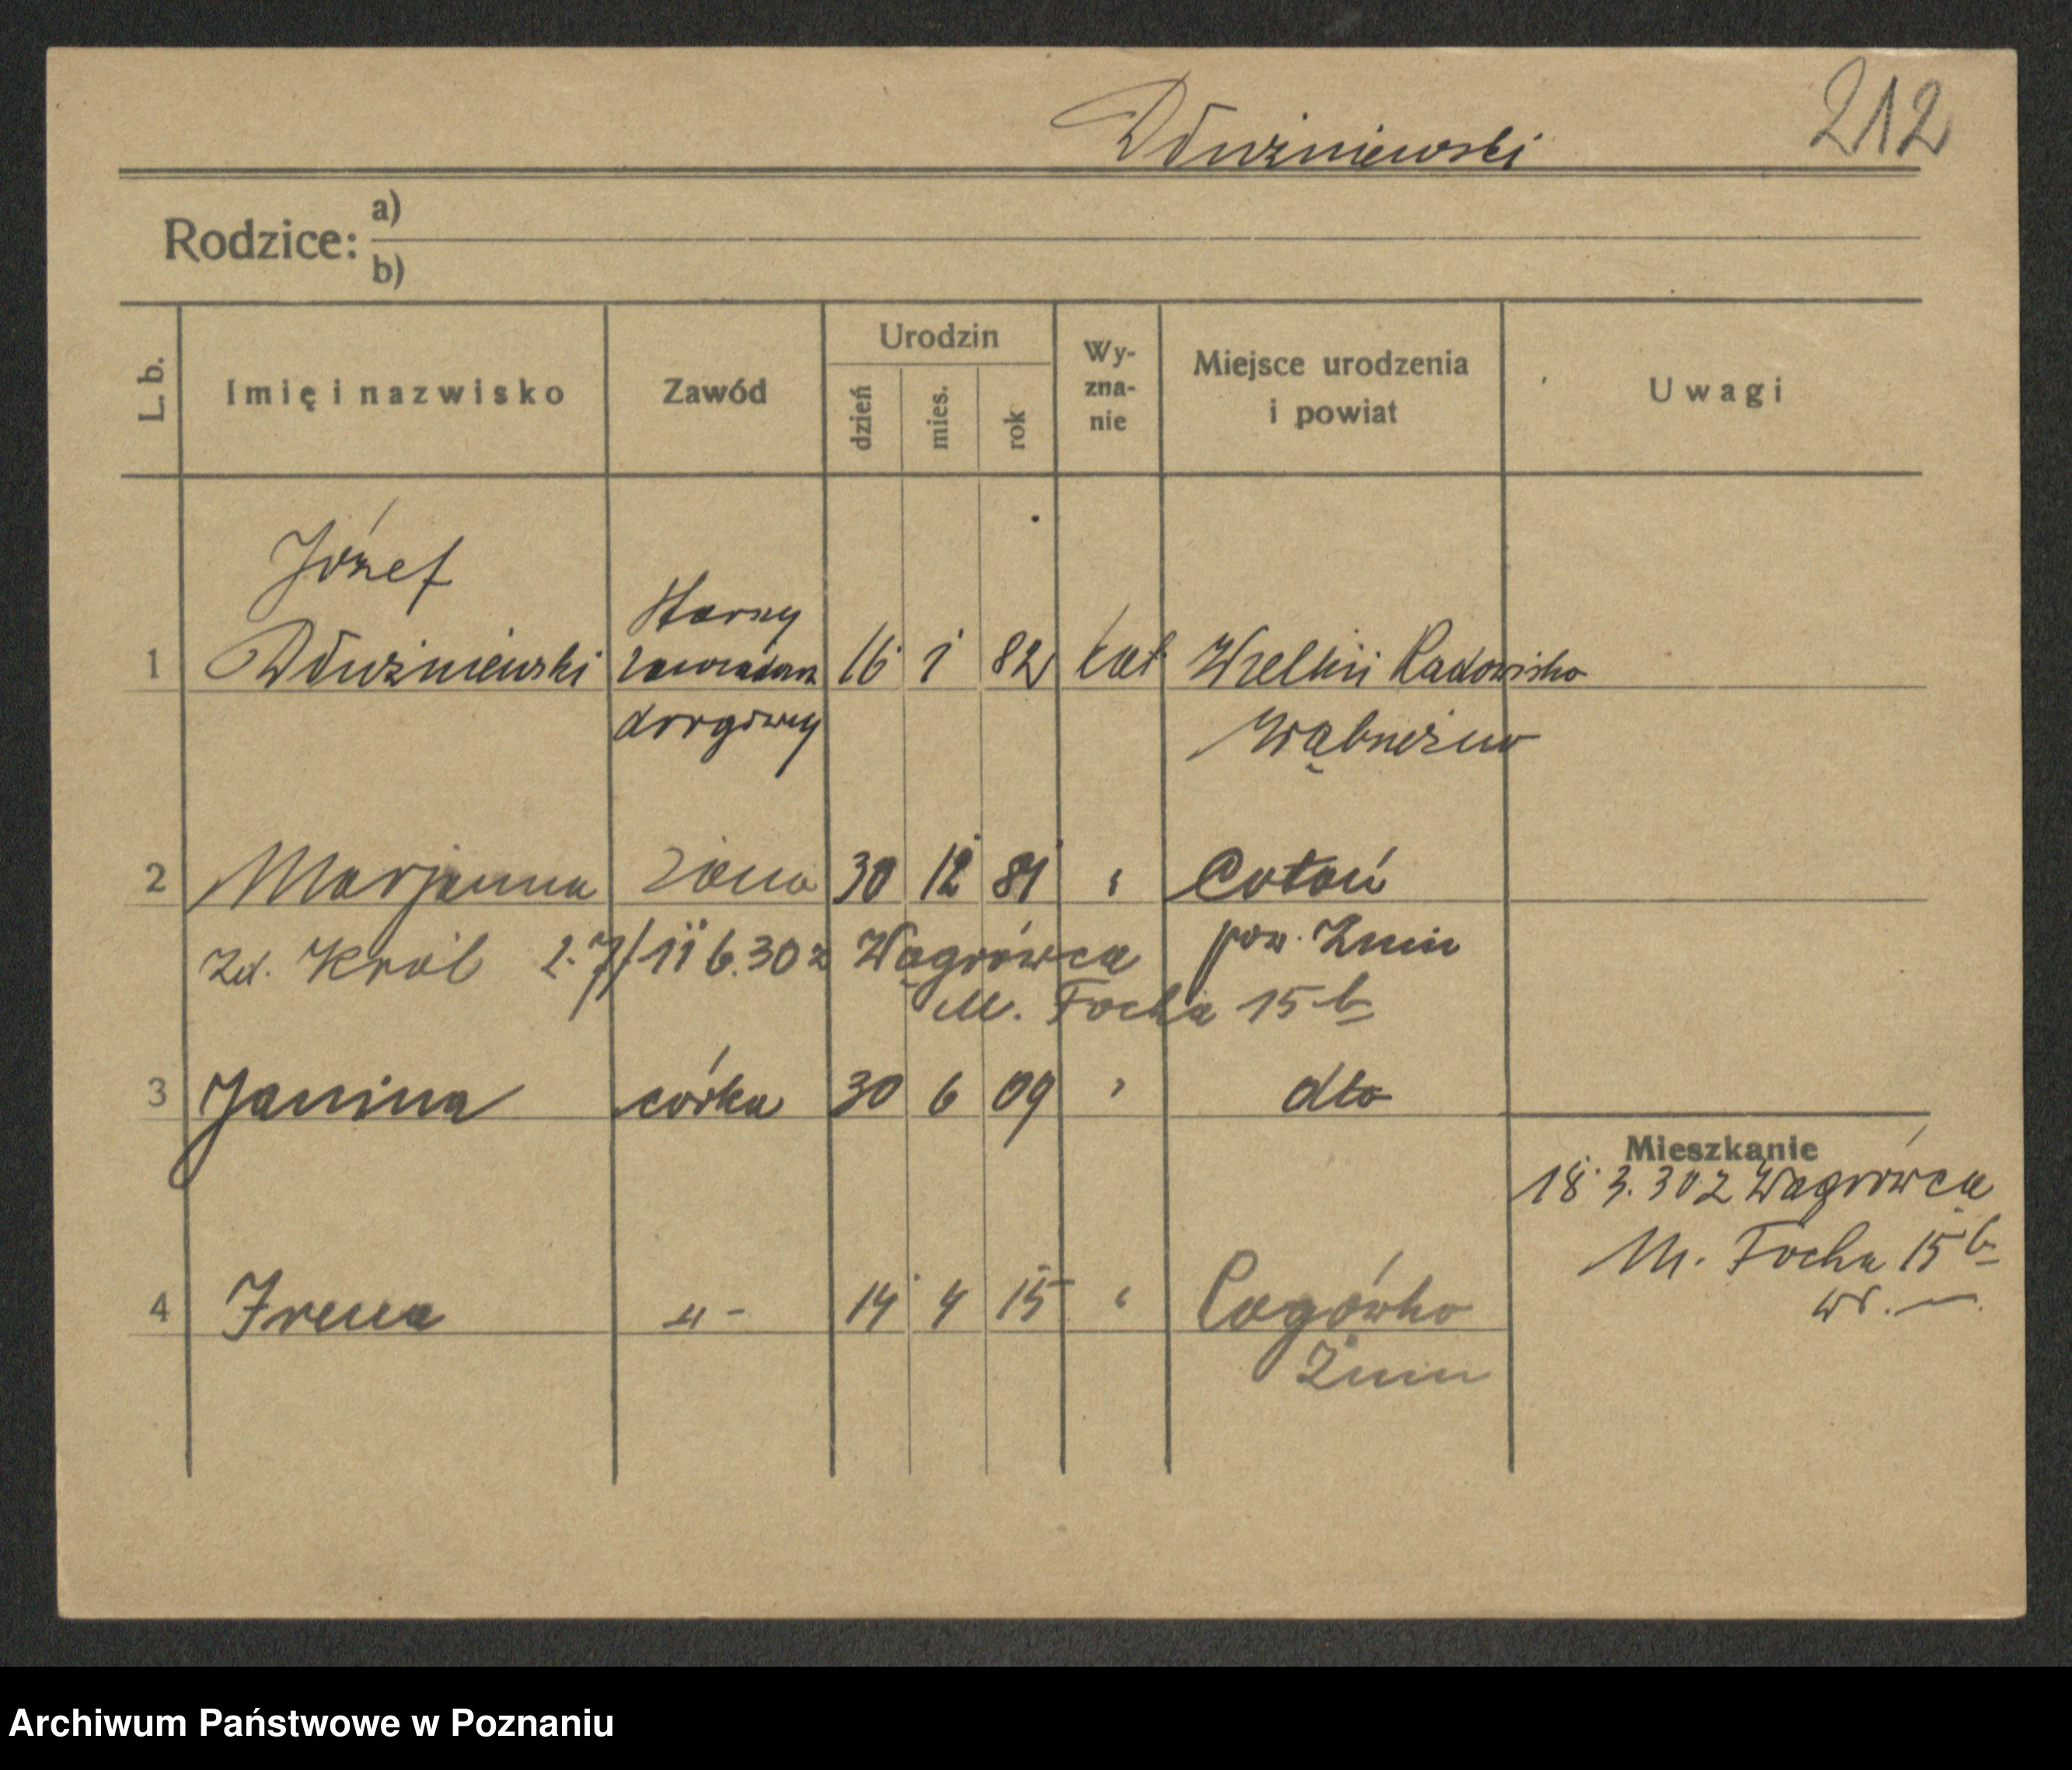 212
Dłużniewski
Rodzice:
a)
b)
L. b.
Imię i nazwisko
Zawód
Urodzin
dzień
mies.
rok
Wy-
zna-
nie
Miejsce urodzenia
i powiat
Uwagi
Józef
Starszy
1 Dłużniewski zawiadow 16 1 82 kat Wielkii Radowisko
drogowy Wąbrzeźno
2 Marjanna żona 30 12 81 " Cotoń
pow. Żnin
zd. Król 2.7/11 6.30 z Wągrówca
M. Focha 15 b
3 Janina córka 30 6 09 " dto
Mieszkanie
18 3.30 z Wągrówca
M. Focha 15 b
4 Irena -"- 14 4 15 "
Żnin